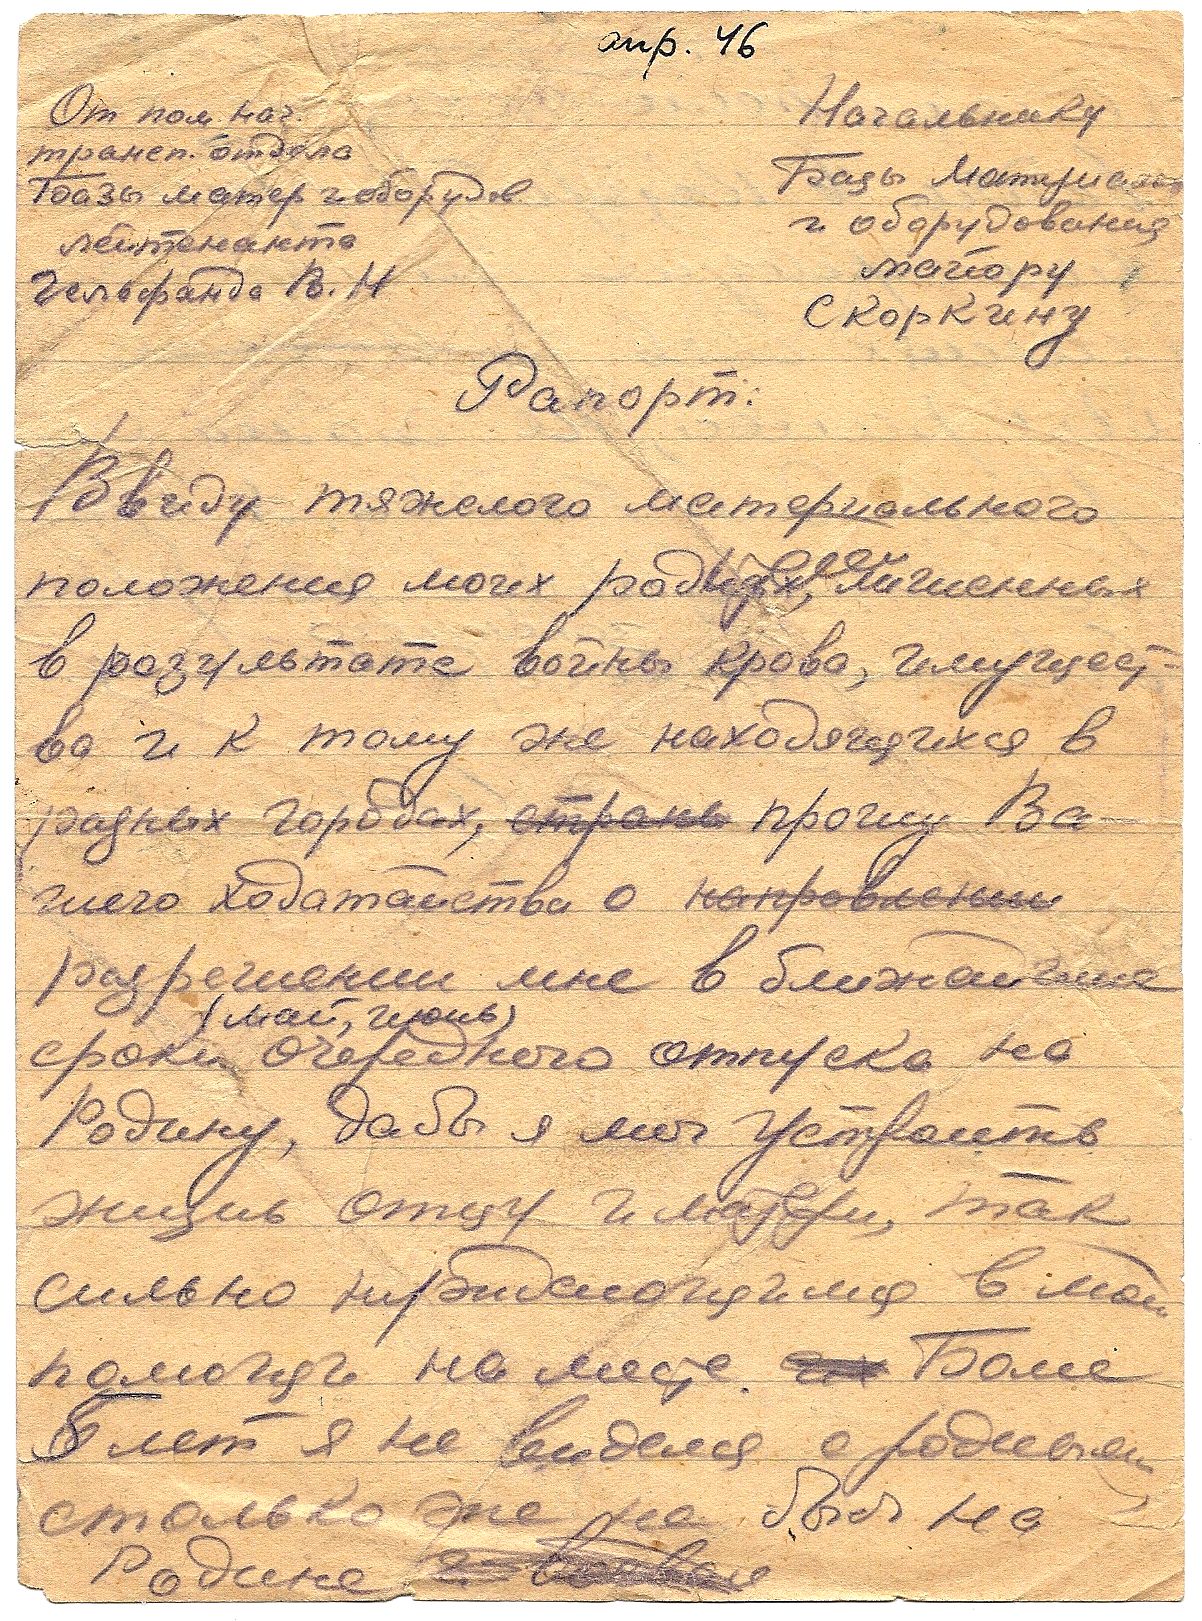 апр. 46
От пом. нач.
трансп. отдела
Базы матер и оборудов.
лейтенанта
Гельфанда В. Н
Начальнику
Базы Материалов
и оборудования
майору
Скоркину
Рапорт:
Ввиду тяжелого материального
положения моих родителей, лишенных
в результате войны крова, имущест-
ва и к тому же находящихся в
разных городах, стран прошу Ва-
шего ходатайства о направлении
разрешении мне в ближайшие
(май, июнь)
сроки очередного отпуска на
Родину, дабы я мог устроить
жизнь отцу и матери, так
сильно нуждающимся в моей
помощи на месте. Более
5 лет я не виделся с родными
столько же не был на
Родине